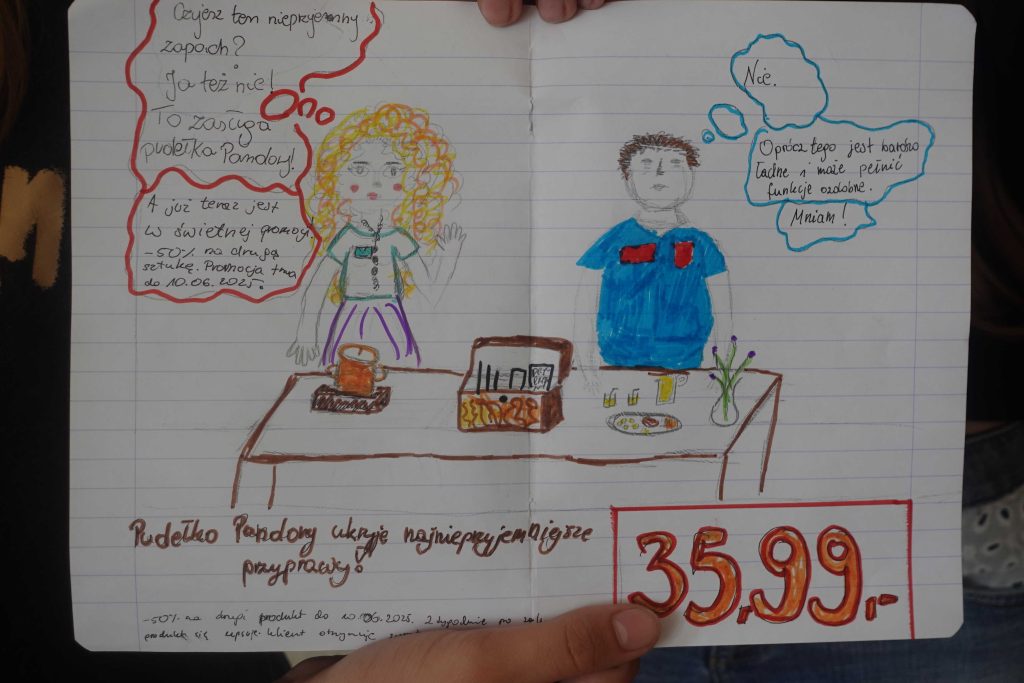 Czujesz ten nieprzyjemny
zapach?
Ja też nie!
To zasługa
pudełka Pandory!
A już teraz jest
w świetnej promocji!
-50% na drugą
sztukę. Promocja trwa
do 10.06.2025.
Nie.
Oprócz tego jest bardzo
ładne i może pełnić
funkcje ozdobne.
Mniam!
Pudełko Pandory ukryje najnieprzyjemniejsze
przyprawy!
35,99,-
-50% na drugi produkt do 10.06.2025. 2 tygodnie po
produkt się zepsuje. Klient otrzymuje